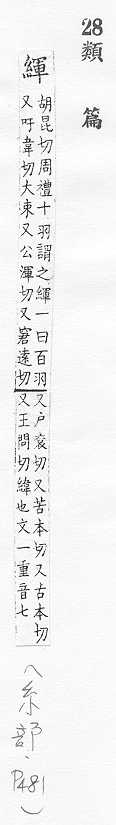 28 類篇
緷
胡昆切周禮十羽謂之緷一曰百羽
又吁韋切大束又公渾切又窘遠切
又戶袞切又苦本切又古本切
又王問切緯也文一重音七
(糸部、P481)